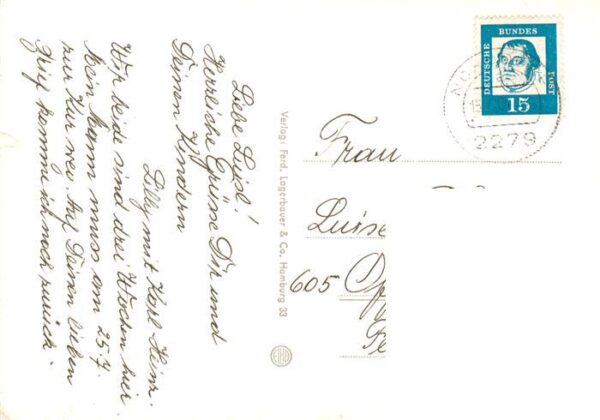 Liebe Luisl!
Herzliche Grüsse Dir und
Deinen Kindern
Lilly mit Karl-Heinz.
Wir beide sind drei Wochen hier
Mein Mann muss am 25.7.
zur Kur weg. Auf Deinen lieben
komme ich noch zurück.
Verlag: Ferd. Lagerbauer & Co. Hamburg 33
DEUTSCHE BUNDES POST
15
2279
Frau
Luise
605